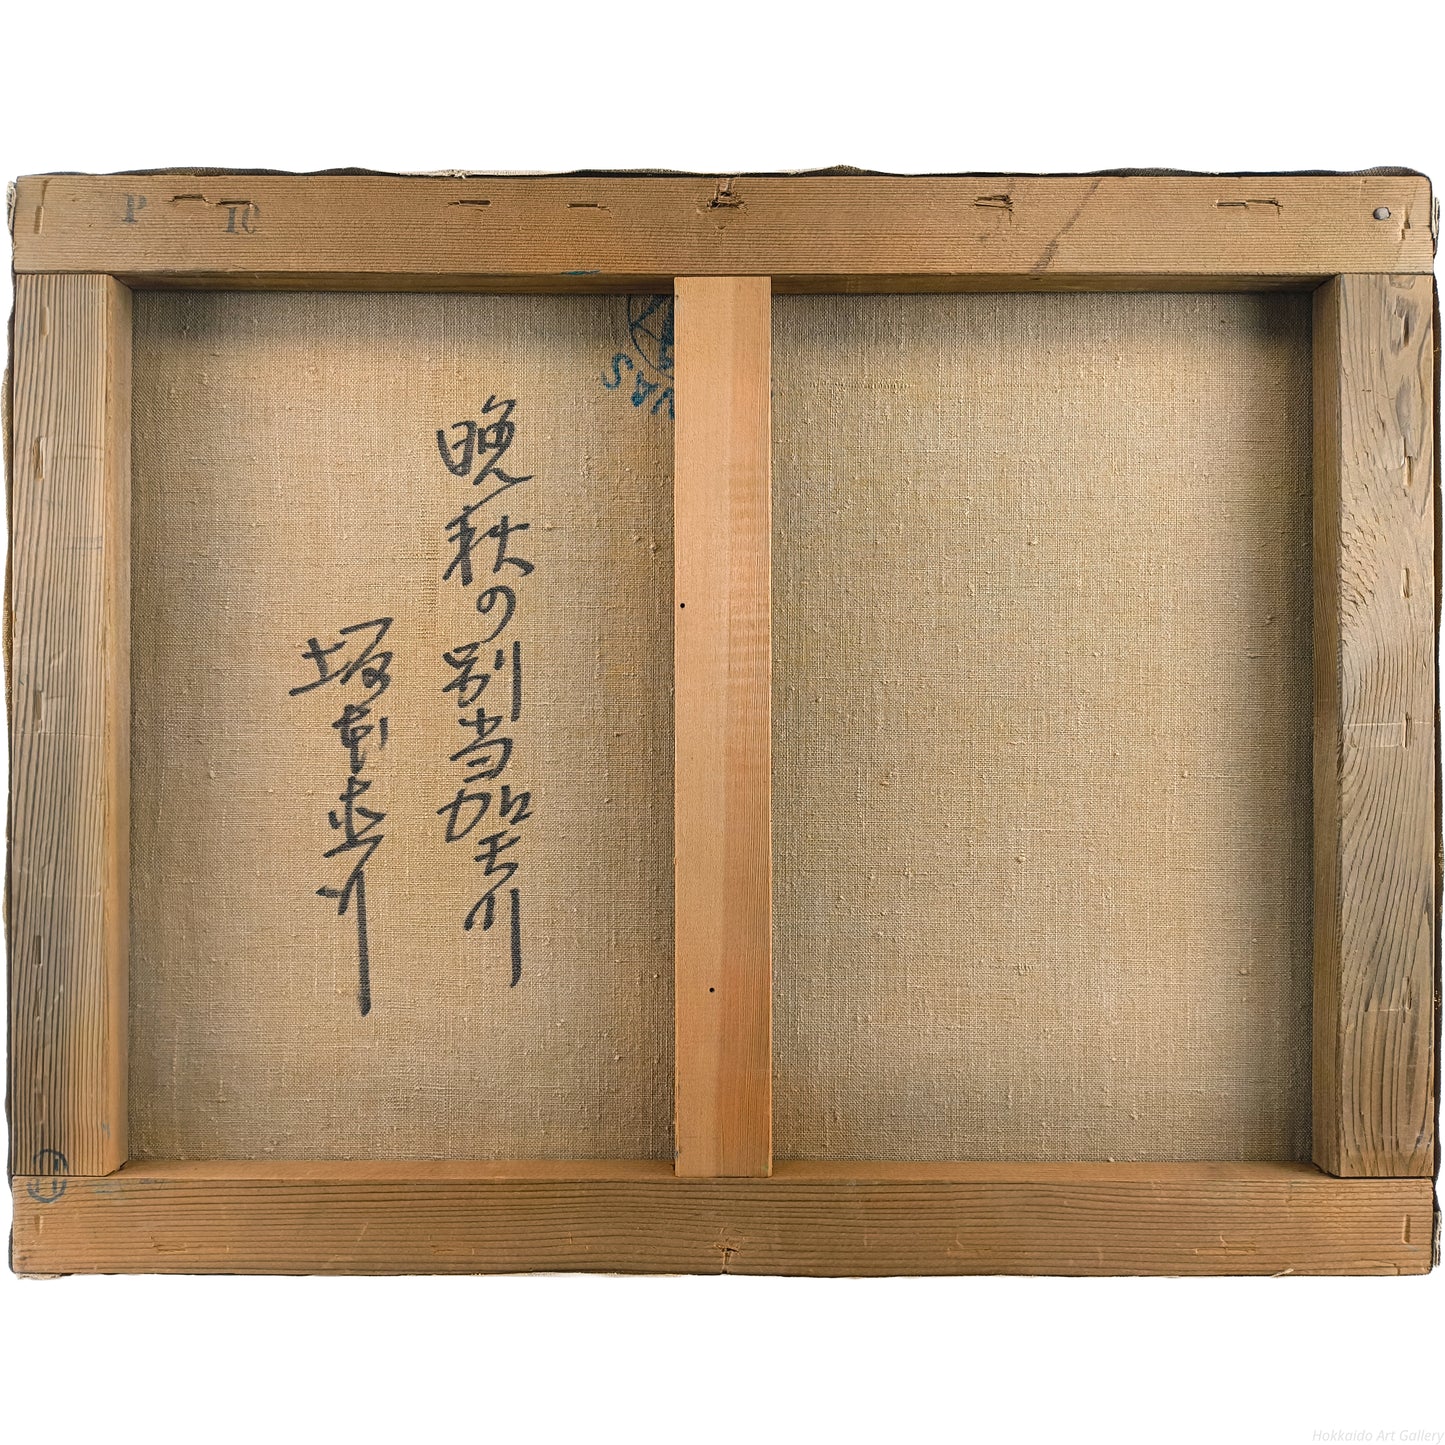 P 10
VAS
晩秋の別当加川
坂本直行
Hokkaido Art Gallery